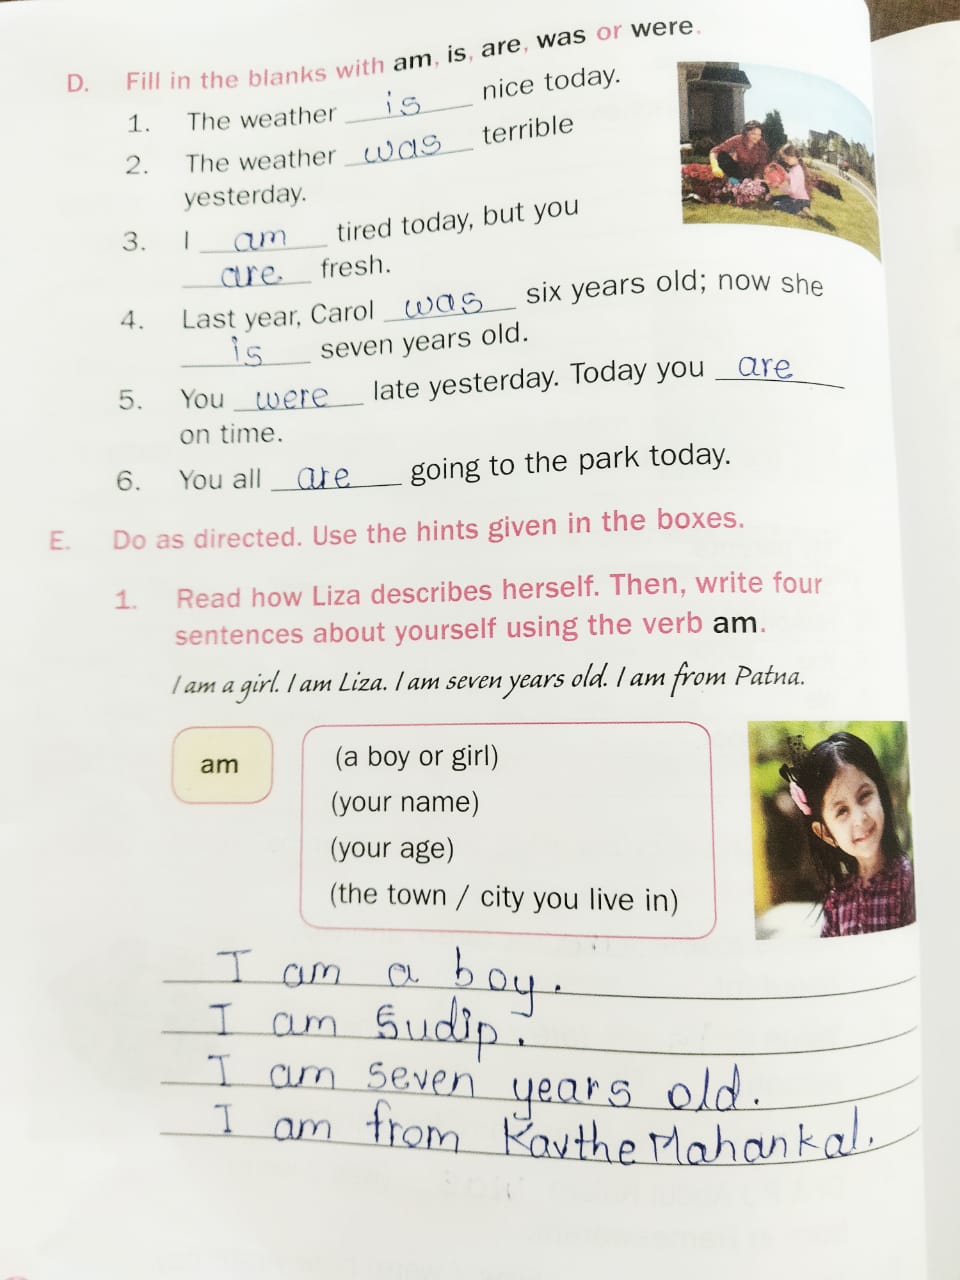 D. Fill in the blanks with am, is, are, was or were.
1. The weather is nice today.
2. The weather was terrible
yesterday.
3. I am tired today, but you
are fresh.
4. Last year, Carol was six years old; now she
is seven years old.
5. You were late yesterday. Today you are
on time.
6. You all are going to the park today.
E. Do as directed. Use the hints given in the boxes.
1. Read how Liza describes herself. Then, write four
sentences about yourself using the verb am.
I am a girl. I am Liza. I am seven years old. I am from Patna.
am
(a boy or girl)
(your name)
(your age)
(the town / city you live in)
I am a boy.
I am Sudip.
I am seven years old.
I am from Kavthe Mahankal.